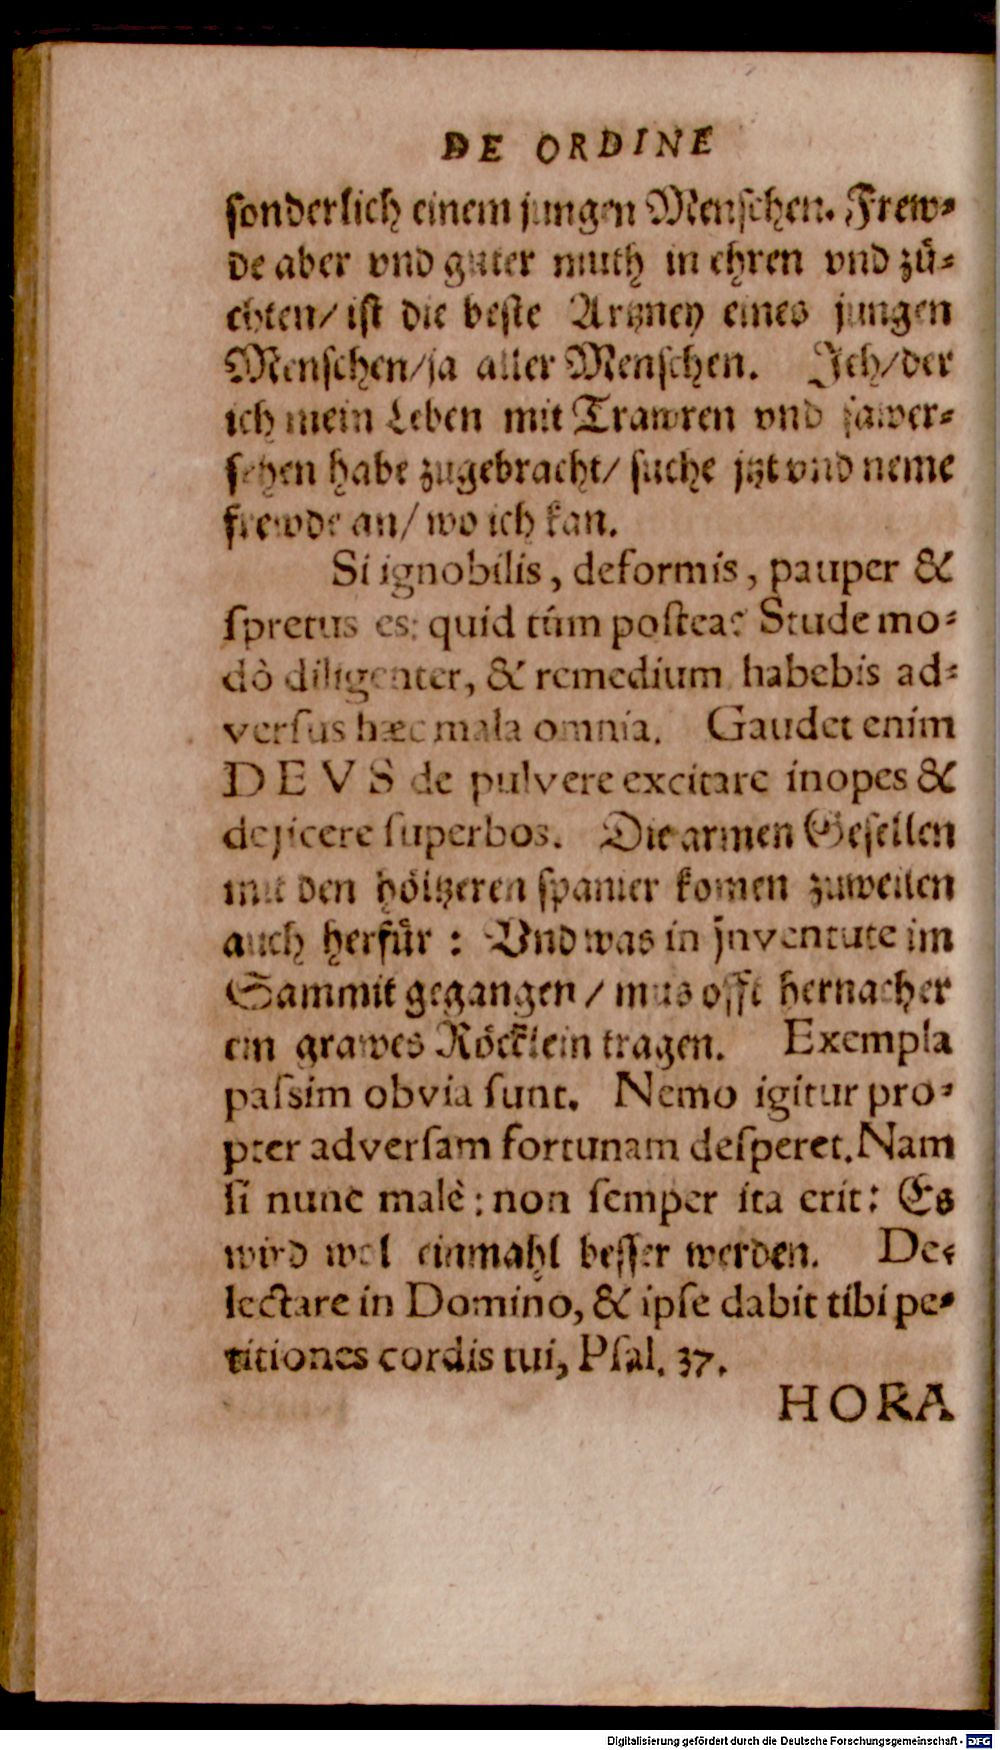 DE ORDINE
sonderlich einem jungen Menschen. Frew-
de aber vnd guter muth in ehren vnd zuͤ-
chten/ ist die beste Artzney eines jungen
Menschen/ ja aller Menschen. Ich/ der
ich mein Leben mit Trawren vnd sawer-
sehen habe zugebracht/ suche jtzt vnd neme
frewde an/ wo ich kan.
Si ignobilis, deformis, pauper &
ſpretus es: quid tùm poſtea? Stude mo-
dò diligenter, & remedium habebis ad-
verſus hæc mala omnia. Gaudet enim
DEVS de pulvere excitare inopes &
dejicere ſuperbos. Die armen Gesellen
mit den hoͤltzeren spanier komen zuweilen
auch herfuͤr : Vnd was in juventute im
Sammit gegangen / mus offt hernacher
ein grawes Roͤcklein tragen. Exempla
paſsim obvia ſunt. Nemo igitur pro-
pter adverſam fortunam deſperet. Nam
ſi nunc malè: non ſemper ita erit: Es
wird wol einmahl besser werden. De-
lectare in Domino, & ipſe dabit tibi pe-
titiones cordis tui, Pſal. 37.
HORA
Digitalisierung gefördert durch die Deutsche Forschungsgemeinschaft - DFG